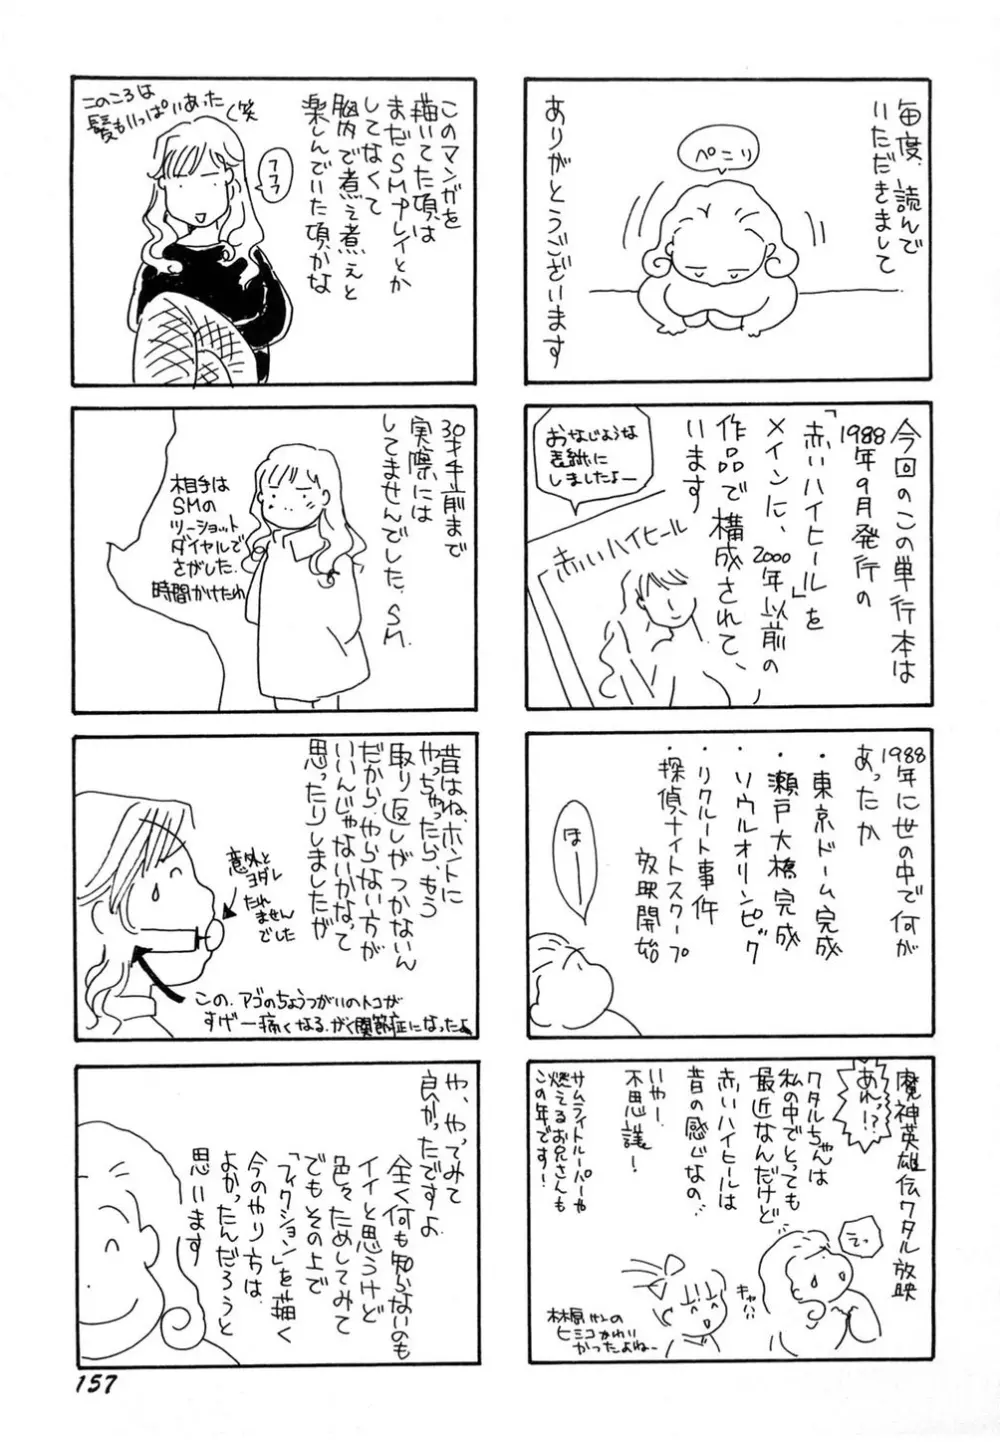 毎度、読んで
いただきまして
ペこり
ありがとうございます
今回のこの単行本は
1988年9月発行の
「赤いハイヒール」を
メインに、2000年以前の
作品で構成されて
います
おなじような
表紙に
しましたよー
赤いハイヒール
1988年に世の中で何が
あったか
・東京ドーム完成
・瀬戸大橋完成
・ソウルオリンピック
・リクルート事件
探偵ナイトスクープ
放映開始
ほーー
魔神英雄伝ワタル放映
あれっ!?
ワタルちゃんは
私の中でとっても
最近なんだけど
赤いハイヒールは
昔の感じなの…
いやー
不思議!
サムライトルーパーや
燃えるお兄さんも
この年です!
そっ
キャハハ
林原サンの
ヒミコかわい
かったよねー
このマンガを
描いてた頃は
まだSMプレイとか
してなくて
脳内で煮え煮えと
楽しんでいた頃かな
このころは
髪もいっぱいあった
(笑
フフフ
30才手前まで
実際には
してませんでした、SM.
相手は
SMの
ツーショット
ダイヤルで
さがした.
時間かけたわ
昔はね、ホントに
やっちゃったら、もう
取り返しがつかないん
だから、やらない方が
いいんじゃないかなって
思ったりしましたが
意外と
ヨダレ
たれ
ません
でした
この、アゴのちょうつがいのトコが
すげー痛くなる.がく関節症になったよ
や、やってみて
良かったですよ
全く何も知らないのも
イイと思うけど
色々ためしてみて
でもその上で
「フィクション」を描く
今のやり方は
よかったんだろうと
思います
157